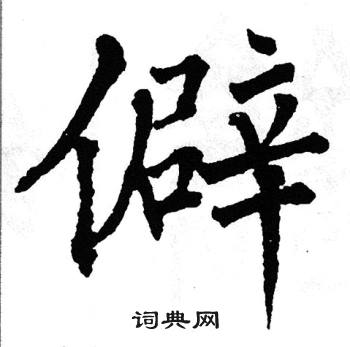 僻
词典网